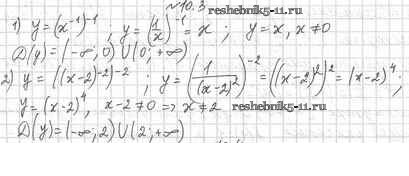 №10.3
reshebnik5-11.ru
1) y = (x⁻¹)⁻¹ ; y = (1/x)⁻¹ = x ; y = x, x ≠ 0
D(y) = (-∞; 0) ∪ (0; +∞)
2) y = ((x-2)⁻²)⁻² ; y = (1/(x-2)²)⁻² = ((x-2)²)² = (x-2)⁴ ;
y = (x-2)⁴, x-2 ≠ 0 => x ≠ 2
reshebnik5-11.ru
D(y) = (-∞; 2) ∪ (2; +∞)